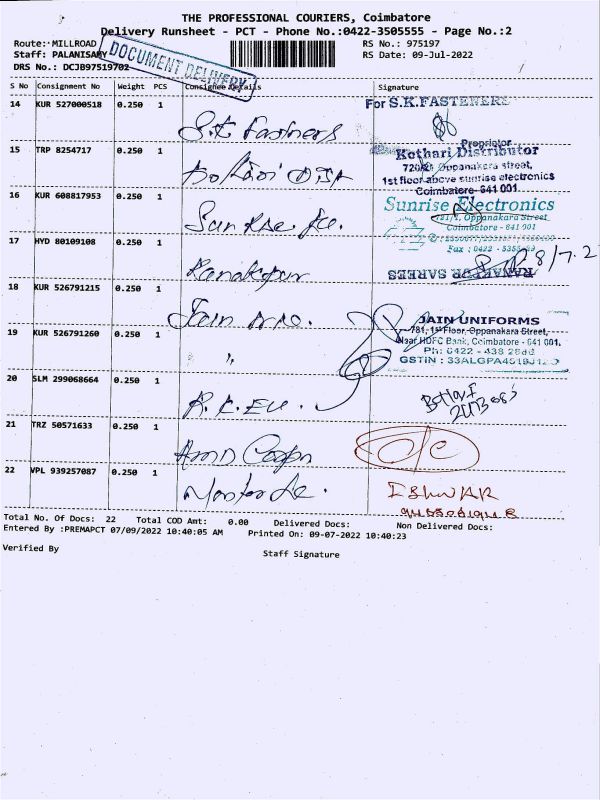 THE PROFESSIONAL COURIERS, Coimbatore
Delivery Runsheet - PCT - Phone No.:0422-3505555 - Page No.:2
Route: MILLROAD
RS No.: 975197
Staff: PALANISAMY
RS Date: 09-Jul-2022
DRS No.: DCJB97519702
DOCUMENT DELIVERY
S No Consignment No Weight PCS Consignee Details Signature
14 KUR 527000518 0.250 1 S.K Fastners
For S.K.FASTENERS
Proprietor
15 TRP 8254717 0.250 1
Kothari Distributor
Oppanakara street,
1st floor above sunrise electronics
Coimbatore-641 001
16 KUR 608817953 0.250 1
Sunrise Electronics
Oppanakara Street
Coimbatore - 641 001
Fax : 0422 -
17 HYD 80109108 0.250 1 Ranakpur
8/7.2
RANAKPUR SAREES
18 KUR 526791215 0.250 1 Jain
JAIN UNIFORMS
781, 1st Floor, Oppanakara Street,
Near HDFC Bank, Coimbatore - 641 001.
Ph: 0422 - 438
GSTIN : 33ALGPA4519J1
19 KUR 526791260 0.250 1 "
20 SLM 299068664 0.250 1
21 TRZ 50571633 0.250 1
22 VPL 939257087 0.250 1
ISHWAR
Total No. Of Docs: 22 Total COD Amt: 0.00 Delivered Docs: Non Delivered Docs:
Entered By :PREMAPCT 07/09/2022 10:40:05 AM Printed On: 09-07-2022 10:40:23
Verified By
Staff Signature